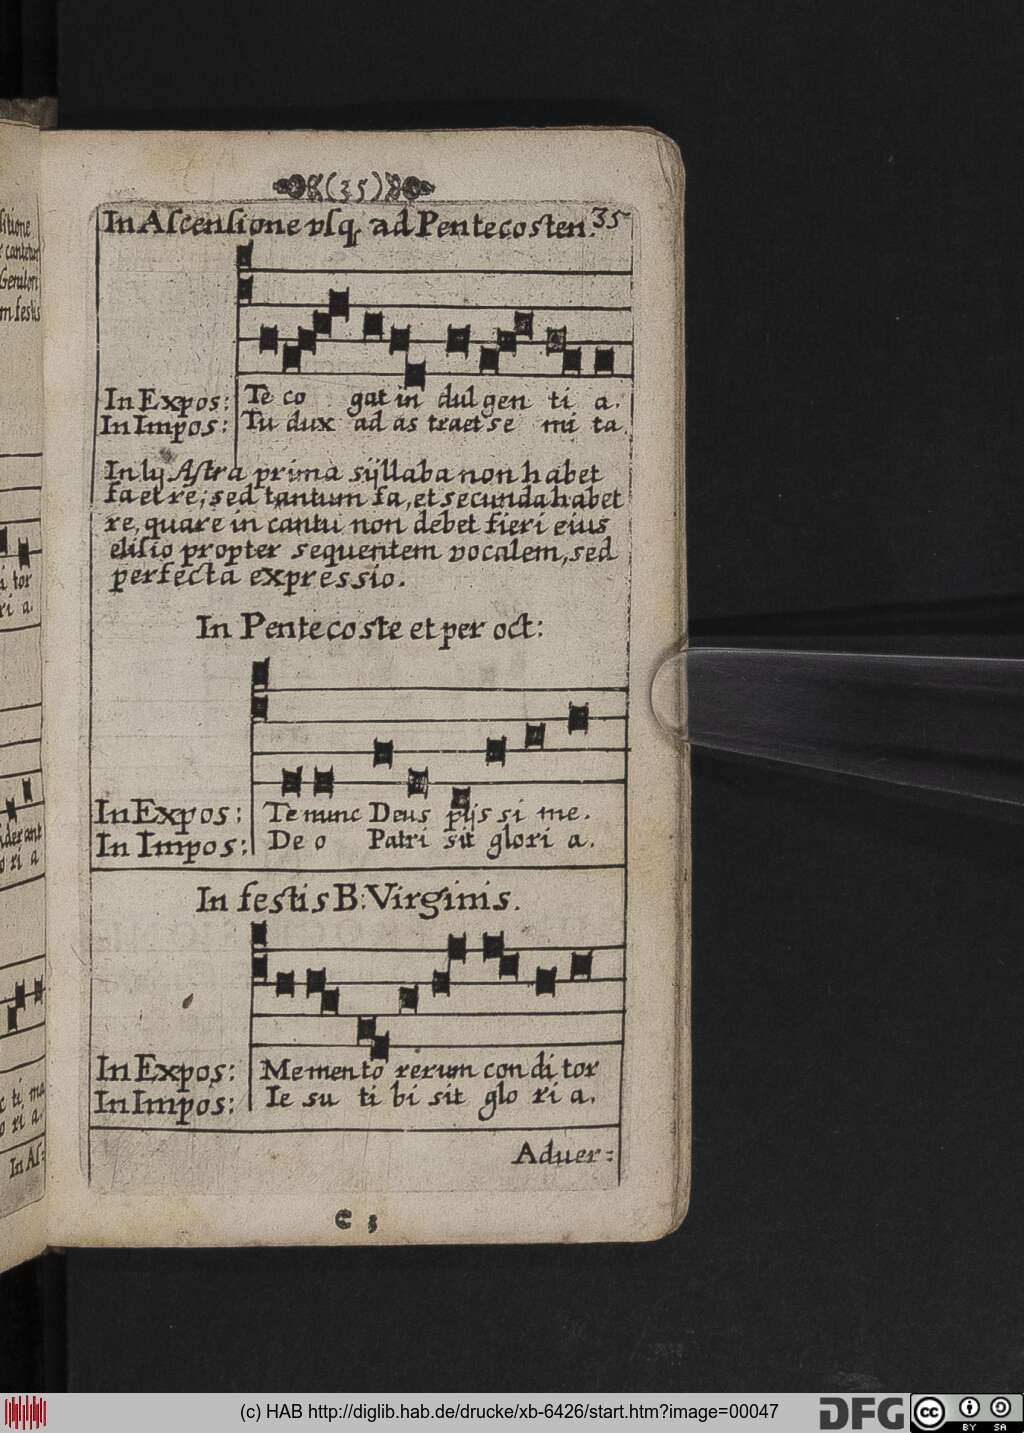 (35)
In Ascensione vsq, ad Pentecosten. 35
In Expos: Te co gat in dul gen ti a.
In Impos: Tu dux ad as traet se mi ta.
In ly Astra prima syllaba non habet
fa et re, sed tantum fa, et secunda habet
re, quare in cantu non debet fieri eius
elisio propter sequentem vocalem, sed
perfecta expressio.
In Pentecoste et per oct:
In Expos: Te nunc Deus pijs si me.
In Impos: De o Patri sit glori a.
In festis B: Virginis.
In Expos: Memento rerum con di tor
In Impos: Ie su ti bi sit glo ri a.
Aduer=
C 3
(c) HAB http://diglib.hab.de/drucke/xb-6426/start.htm?image=00047
DFG
cc BY SA